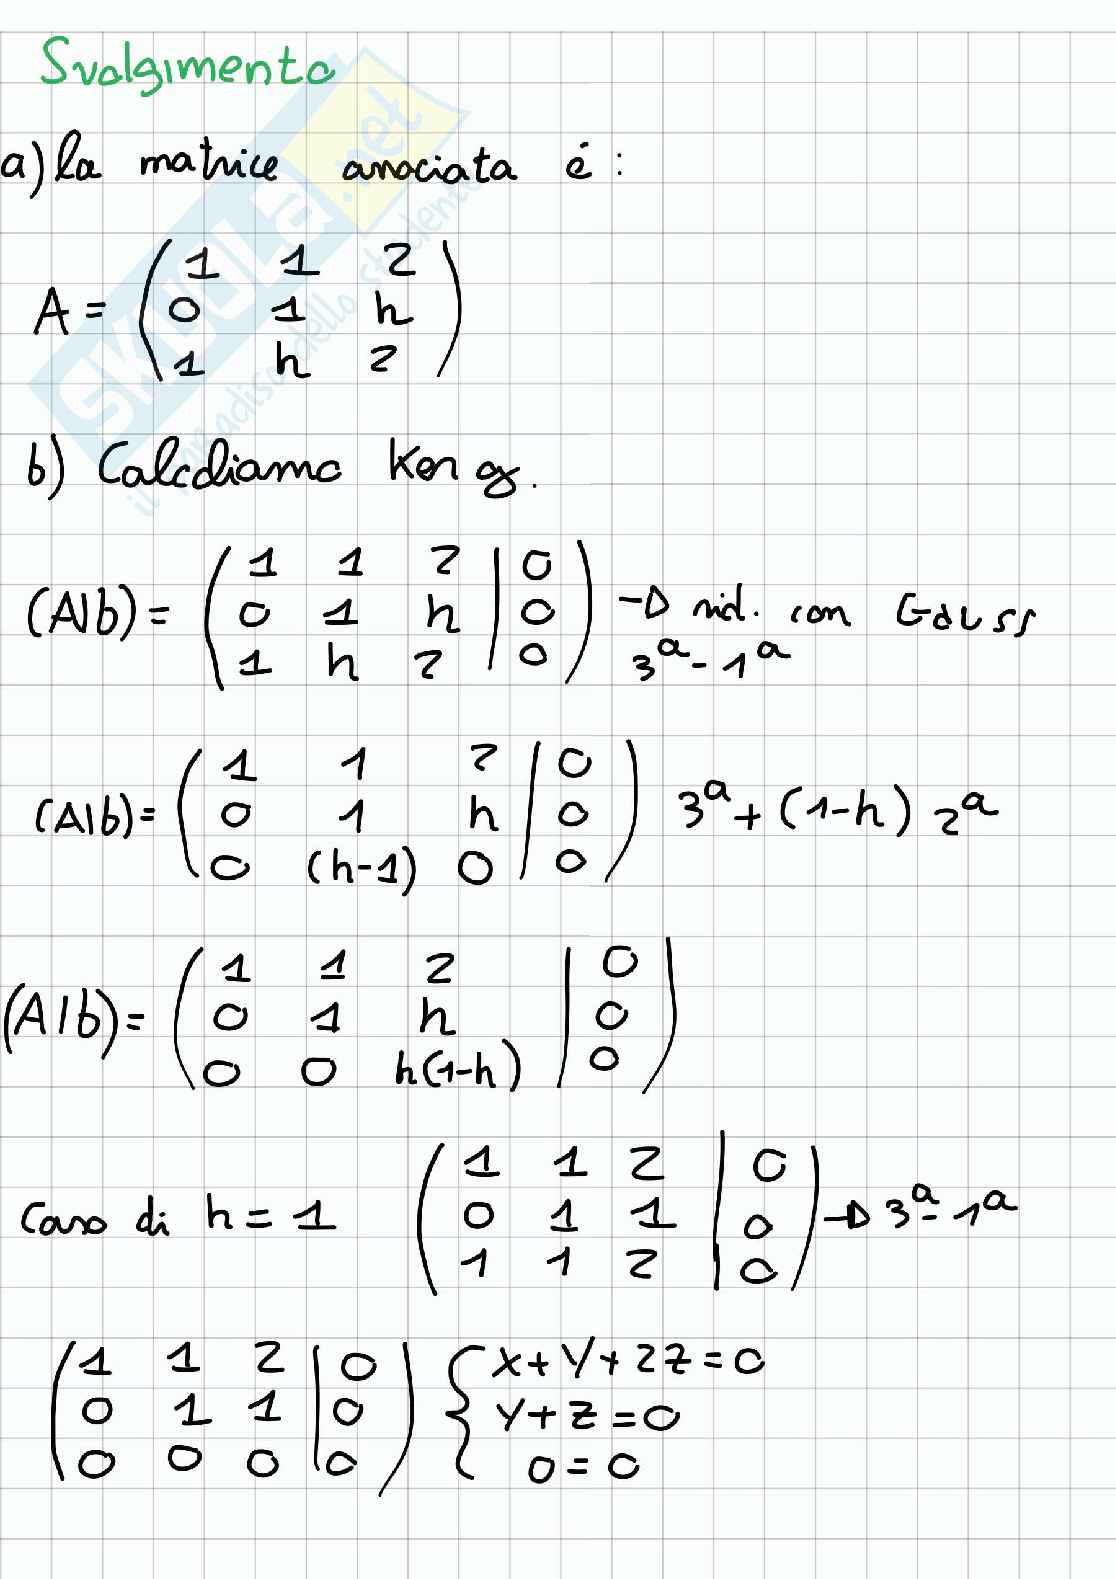 Svolgimento
a) la matrice associata é :
A = ( 1 1 2
0 1 h
1 h 2 )
b) Calcoliamo Ker g.
(A|b) = ( 1 1 2 | 0
0 1 h | 0
1 h 2 | 0 ) → rid. con Gauss
3ª - 1ª
(A|b) = ( 1 1 2 | 0
0 1 h | 0
0 (h-1) 0 | 0 ) 3ª + (1-h) 2ª
(A|b) = ( 1 1 2 | 0
0 1 h | 0
0 0 h(1-h) | 0 )
Caso di h = 1 ( 1 1 2 | 0
0 1 1 | 0
1 1 2 | 0 ) → 3ª - 1ª
( 1 1 2 | 0
0 1 1 | 0
0 0 0 | 0 ) { x + y + 2z = 0
y + z = 0
0 = 0
SKUOLA.net
il paradiso dello studente